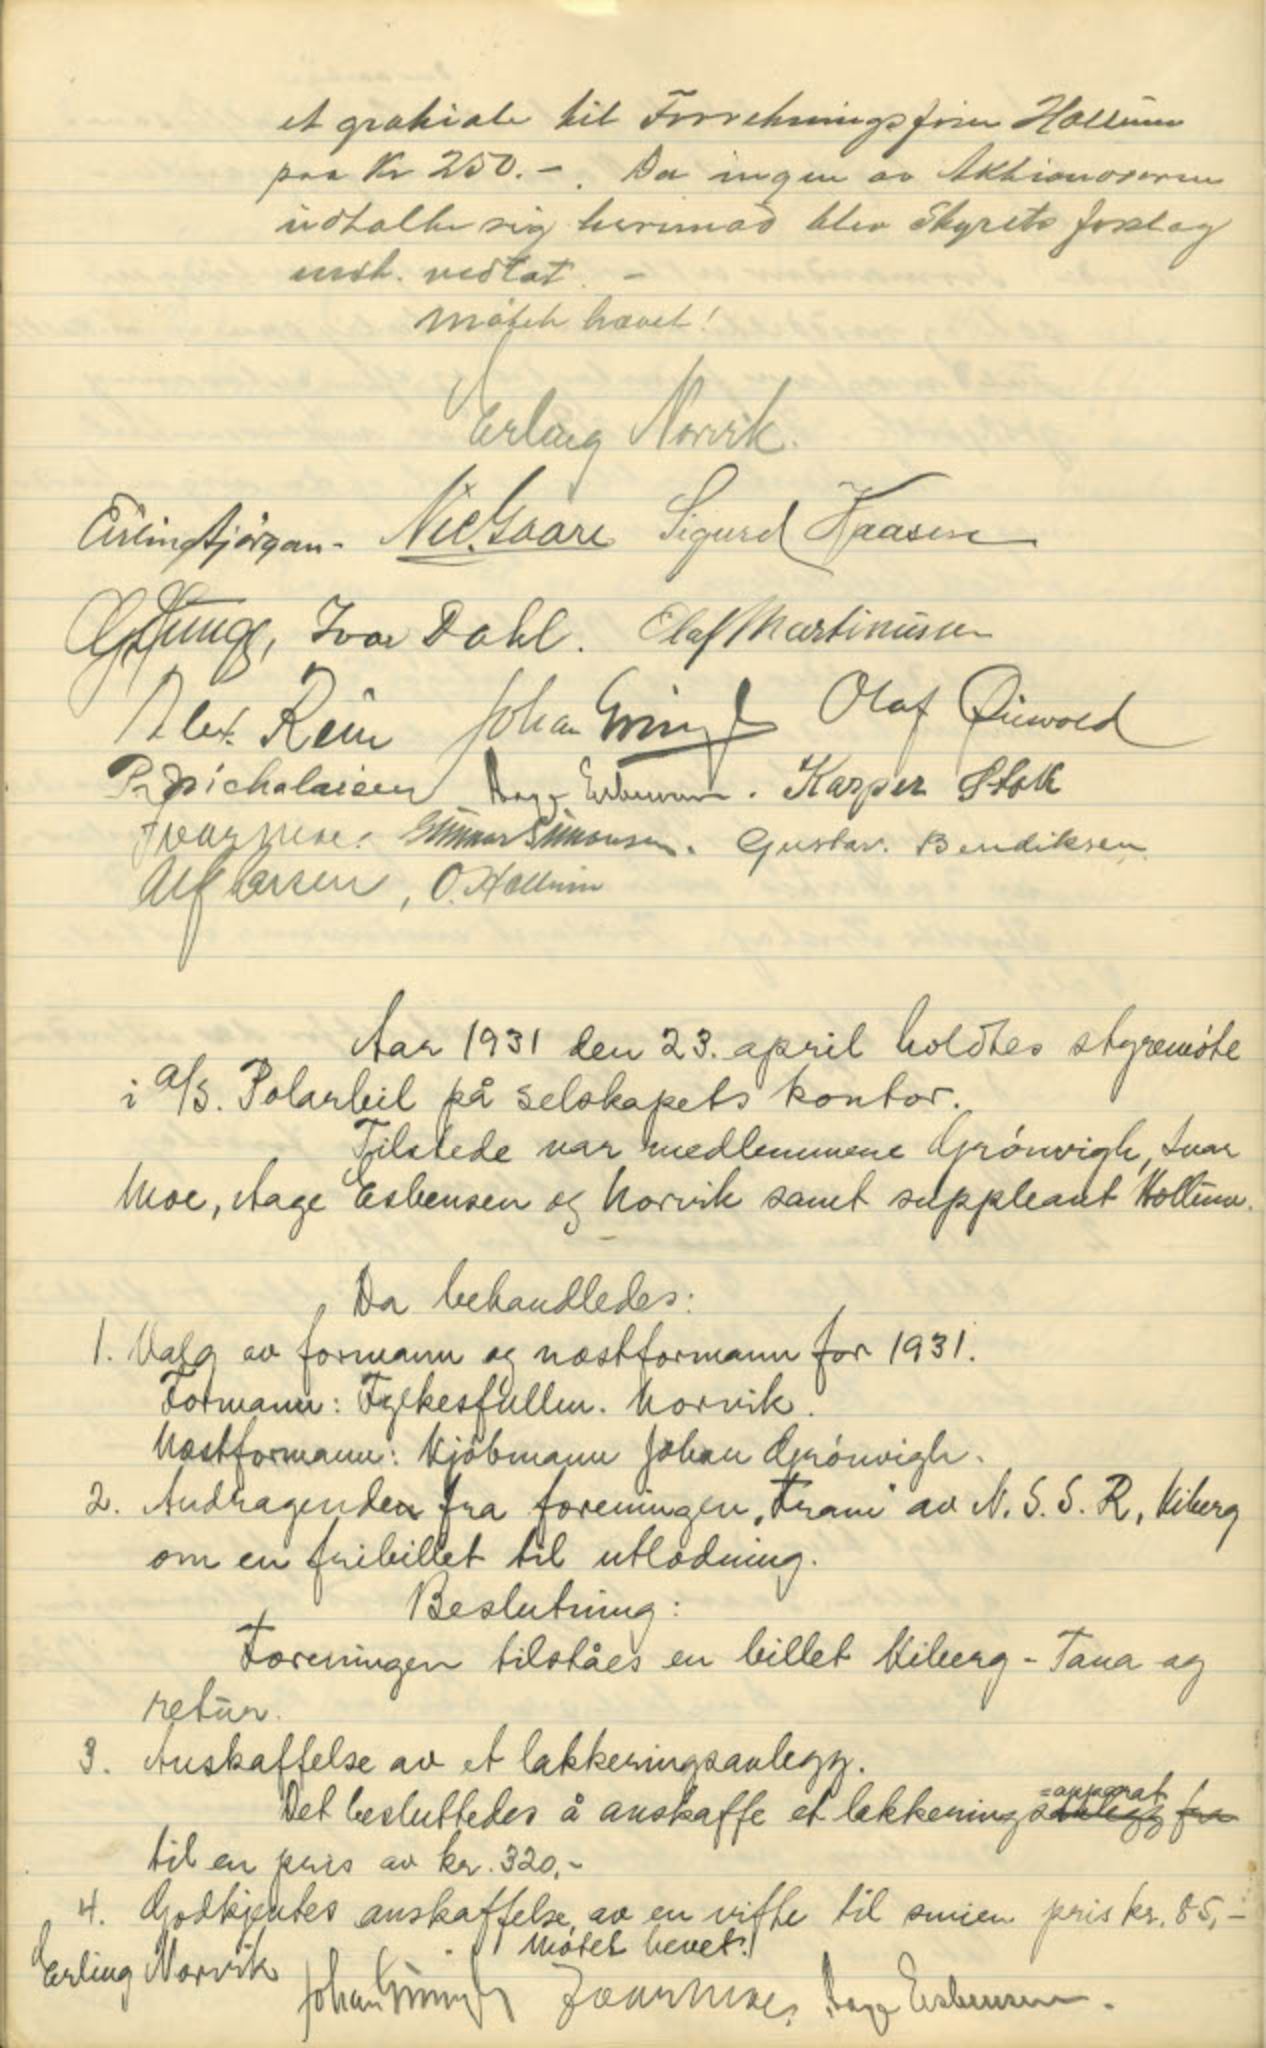 et gratiale til Forretningsfører Hollum
paa Kr 250.-. Da ingen av Aktionærerne
udtalte sig herimod blev Styrets forslag
enst. vedtat. -
Møtet hævet!
Erling Norvik.
Nic. Gaare Sigurd Kaasen
Ivar Dahl. Olaf Martinusen
Alex. Rein Johan Olaf
P. Nicholaisen Aage Esbensen. Kasper Stok
Ivar Moe. Gunnar Simonsen. Gustav. Bendiksen.
Alf Larsen, O. Hollum
Aar 1931 den 23. april holdtes styremøte
i A/S. Polarbil på selskapets kontor.
Tilstede var medlemmene Grønvigh, Ivar
Moe, Aage Esbensen og Norvik samt suppleant Hollum.
Da behandledes:
1. Valg av formann og næstformann for 1931.
Formann: Fylkesfullm. Norvik.
Næstformann: Kjøbmann Johan Grønvigh.
2. Andragenden fra foreningen "Fram" av N. S. S. R, Kiberg
om en fribillet til utlodning.
Beslutning:
Foreningen tilståes en billet Kiberg - Tana og
retur.
3. Anskaffelse av et lakkeringsanlegg.
=apparat
Det besluttedes å anskaffe et lakkeringsanlegg fra
til en pris av kr. 320,-
4. Godkjentes anskaffelse av en vifte til smien pris kr. 85,-
Møtet hevet.
Erling Norvik Johan Ivar Moe, Aage Esbensen.